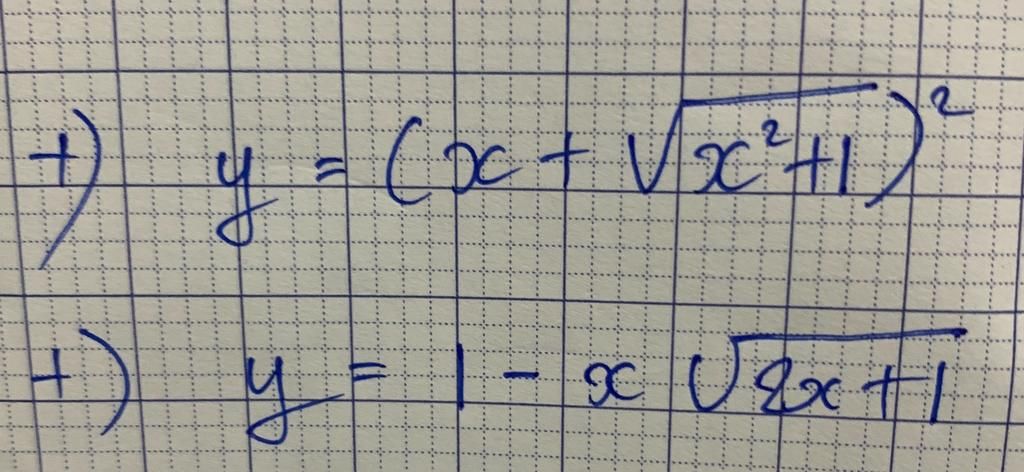 +) y = (x + √(x²+1))²
+) y = 1 - x √(2x+1)